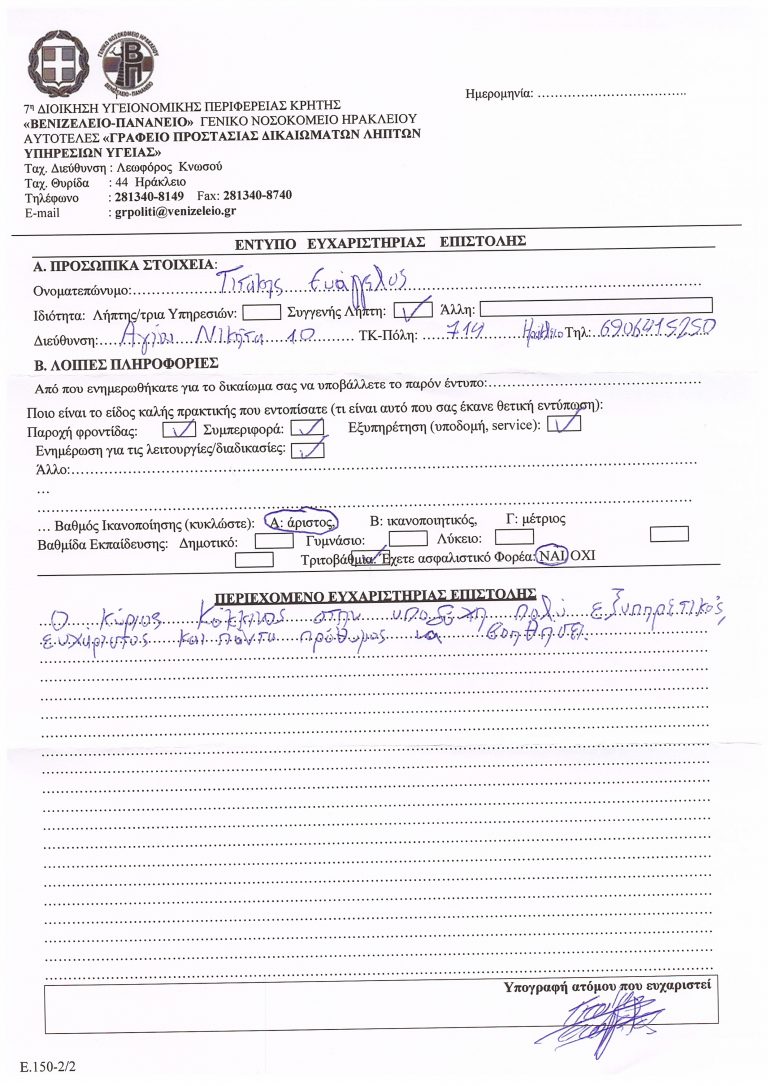 ΓΕΝΙΚΟ ΝΟΣΟΚΟΜΕΙΟ ΗΡΑΚΛΕΙΟΥ
ΒΠ
ΒΕΝΙΖΕΛΕΙΟ - ΠΑΝΑΝΕΙΟ
Ημερομηνία: ……………………………..
7η ΔΙΟΙΚΗΣΗ ΥΓΕΙΟΝΟΜΙΚΗΣ ΠΕΡΙΦΕΡΕΙΑΣ ΚΡΗΤΗΣ
«ΒΕΝΙΖΕΛΕΙΟ-ΠΑΝΑΝΕΙΟ» ΓΕΝΙΚΟ ΝΟΣΟΚΟΜΕΙΟ ΗΡΑΚΛΕΙΟΥ
ΑΥΤΟΤΕΛΕΣ «ΓΡΑΦΕΙΟ ΠΡΟΣΤΑΣΙΑΣ ΔΙΚΑΙΩΜΑΤΩΝ ΛΗΠΤΩΝ
ΥΠΗΡΕΣΙΩΝ ΥΓΕΙΑΣ»
Ταχ. Διεύθυνση : Λεωφόρος Κνωσού
Ταχ. Θυρίδα : 44 Ηράκλειο
Τηλέφωνο : 281340-8149 Fax: 281340-8740
E-mail : grpoliti@venizeleio.gr
ΕΝΤΥΠΟ ΕΥΧΑΡΙΣΤΗΡΙΑΣ ΕΠΙΣΤΟΛΗΣ
Α. ΠΡΟΣΩΠΙΚΑ ΣΤΟΙΧΕΙΑ:
Ονοματεπώνυμο: Ευάγγελος
Ιδιότητα: Λήπτης/τρια Υπηρεσιών: Συγγενής Λήπτη: ✓ Άλλη:
Διεύθυνση: Αγίου Νικήτα 10 ΤΚ-Πόλη: 714 Ηράκλειο Τηλ: 6906415250
Β. ΛΟΙΠΕΣ ΠΛΗΡΟΦΟΡΙΕΣ
Από που ενημερωθήκατε για το δικαίωμα σας να υποβάλλετε το παρόν έντυπο:
Ποιο είναι το είδος καλής πρακτικής που εντοπίσατε (τι είναι αυτό που σας έκανε θετική εντύπωση):
Παροχή φροντίδας: ✓ Συμπεριφορά: ✓ Εξυπηρέτηση (υποδομή, service): ✓
Ενημέρωση για τις λειτουργίες/διαδικασίες: ✓
Άλλο:
…
… Βαθμός Ικανοποίησης (κυκλώστε): Α: άριστος, Β: ικανοποιητικός, Γ: μέτριος
Βαθμίδα Εκπαίδευσης: Δημοτικό: Γυμνάσιο: Λύκειο:
Τριτοβάθμια: ✓ Έχετε ασφαλιστικό Φορέα: ΝΑΙ ΟΧΙ
ΠΕΡΙΕΧΟΜΕΝΟ ΕΥΧΑΡΙΣΤΗΡΙΑΣ ΕΠΙΣΤΟΛΗΣ
Ο κύριος Κόκκινος στην υποδοχή πολύ εξυπηρετικός,
ευχάριστος και πάντα πρόθυμος να βοηθήσει.
Υπογραφή ατόμου που ευχαριστεί
Ε.150-2/2